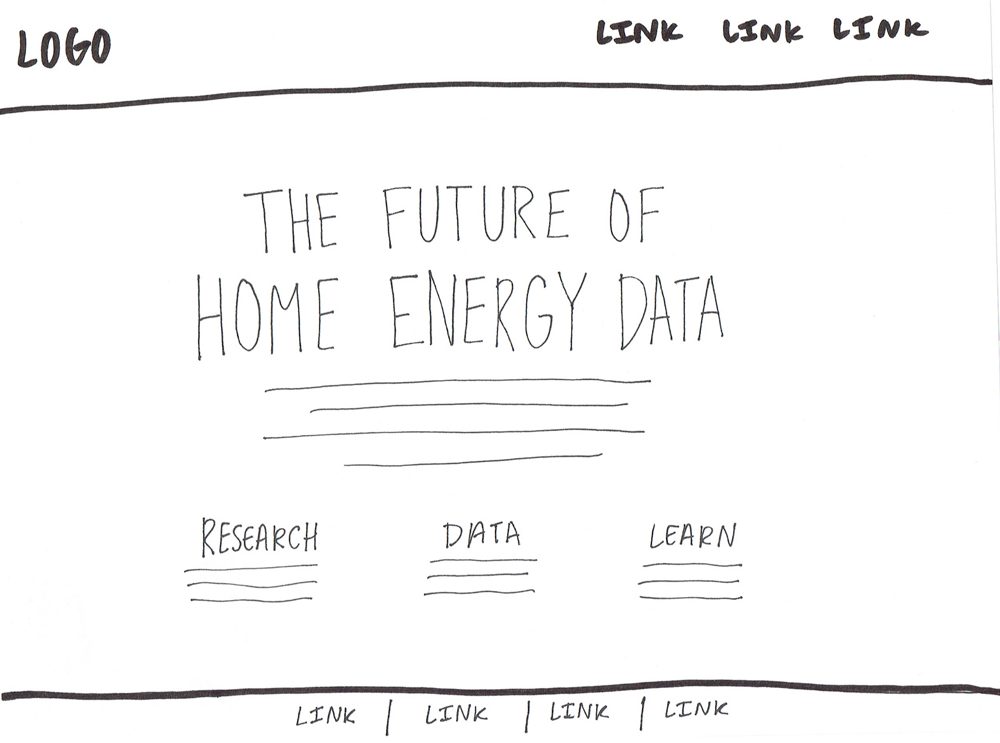 LOGO
LINK LINK LINK
THE FUTURE OF
HOME ENERGY DATA
RESEARCH DATA LEARN
LINK | LINK | LINK | LINK